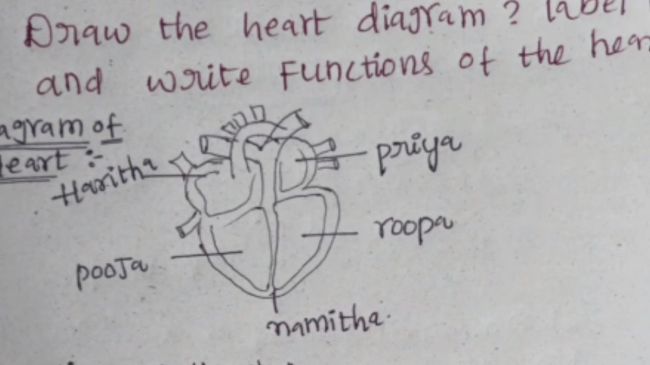 Draw the heart diagram ? label
and write Functions of the hear
agram of
eart :-
Haritha
priya
roopa
pooja
namitha.